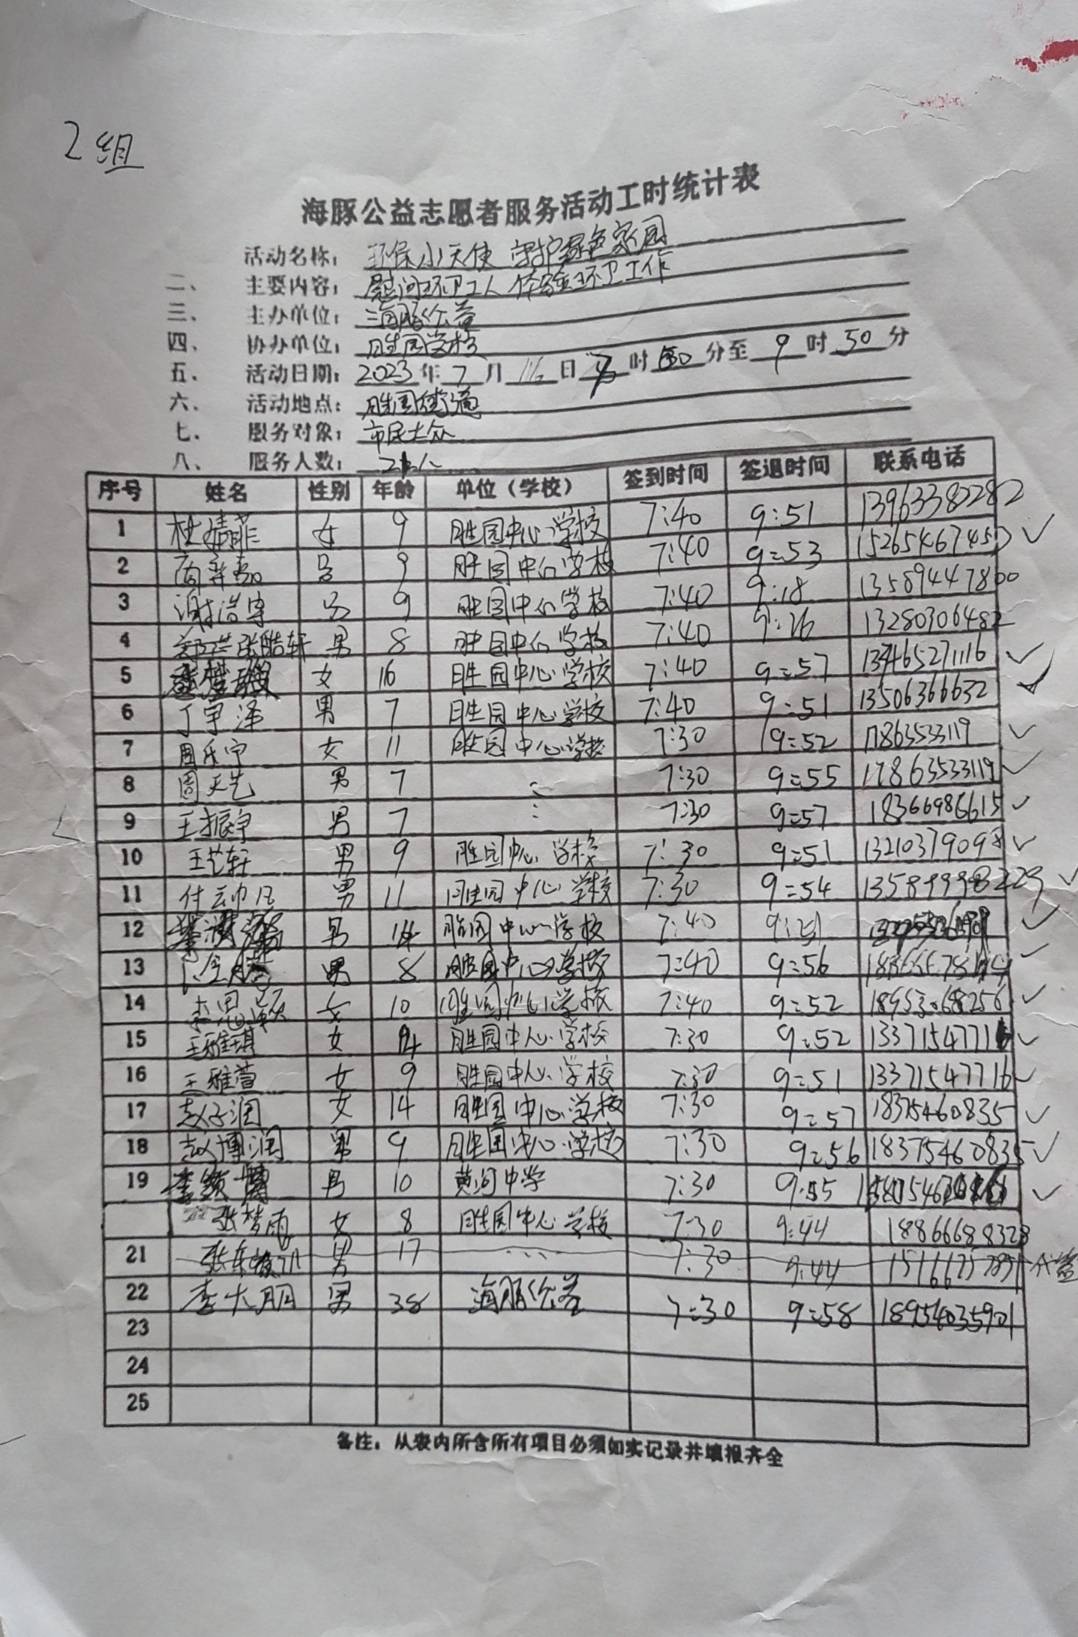 2组
海豚公益志愿者服务活动工时统计表
活动名称：环保小天使 守护绿色家园
二、 主要内容：慰问环卫工人 体验环卫工作
三、 主办单位：海豚公益
四、 协办单位：胜园学校
五、 活动日期：2023年7月16日 时 分至9时50分
六、 活动地点：胜园街道
七、 服务对象：市民大众
八、 服务人数：
序号 姓名 性别 年龄 单位（学校） 签到时间 签退时间 联系电话
1 杜婧菲 女 9 胜园中心学校 7:40 9:51 13963382282
2 男 9 胜园中心学校 7:40 9:53
3 谢浩宇 男 9 胜园中心学校 7:40 9:18 13589447800
4 张皓轩 男 8 胜园中心学校 7:40 9:26 13280306482
5 女 16 胜园中心学校 7:40 9:57
6 丁宇泽 男 7 胜园中心学校 7:40 9:51 13506366632
7 周乐宁 女 11 胜园中心学校 7:30 9:52
8 周天艺 男 7 7:30 9:55 17863533119
9 王振宇 男 7 7:30 9:57 18366986615
10 王艺轩 男 9 胜园中心学校 7:30 9:51 13210379098
11 付 男 11 胜园中心学校 7:30 9:54
12 男 胜园中心学校 7:40
13 男 8 胜园中心学校 7:40 9:56
14 李思颖 女 10 胜园中心学校 7:40 9:52 18953068256
15 王雅琪 女 胜园中心学校 7:30 9:52 1337154771
16 王雅萱 女 9 胜园中心学校 7:30 9:51 13371547716
17 赵子润 女 14 胜园中心学校 7:30 9:57 18375460835
18 赵博润 男 9 胜园中心学校 7:30 9:56 18375460835
19 男 10 黄河中学 7:30 9:55
张梦雨 女 8 胜园中心学校 7:30 9:44 18866688328
21 男 17 7:30 9:44 代签
22 李大朋 男 38 海豚公益 7:30 9:58 18954035901
23
24
25
备注：从表内所含所有项目必须如实记录并填报齐全